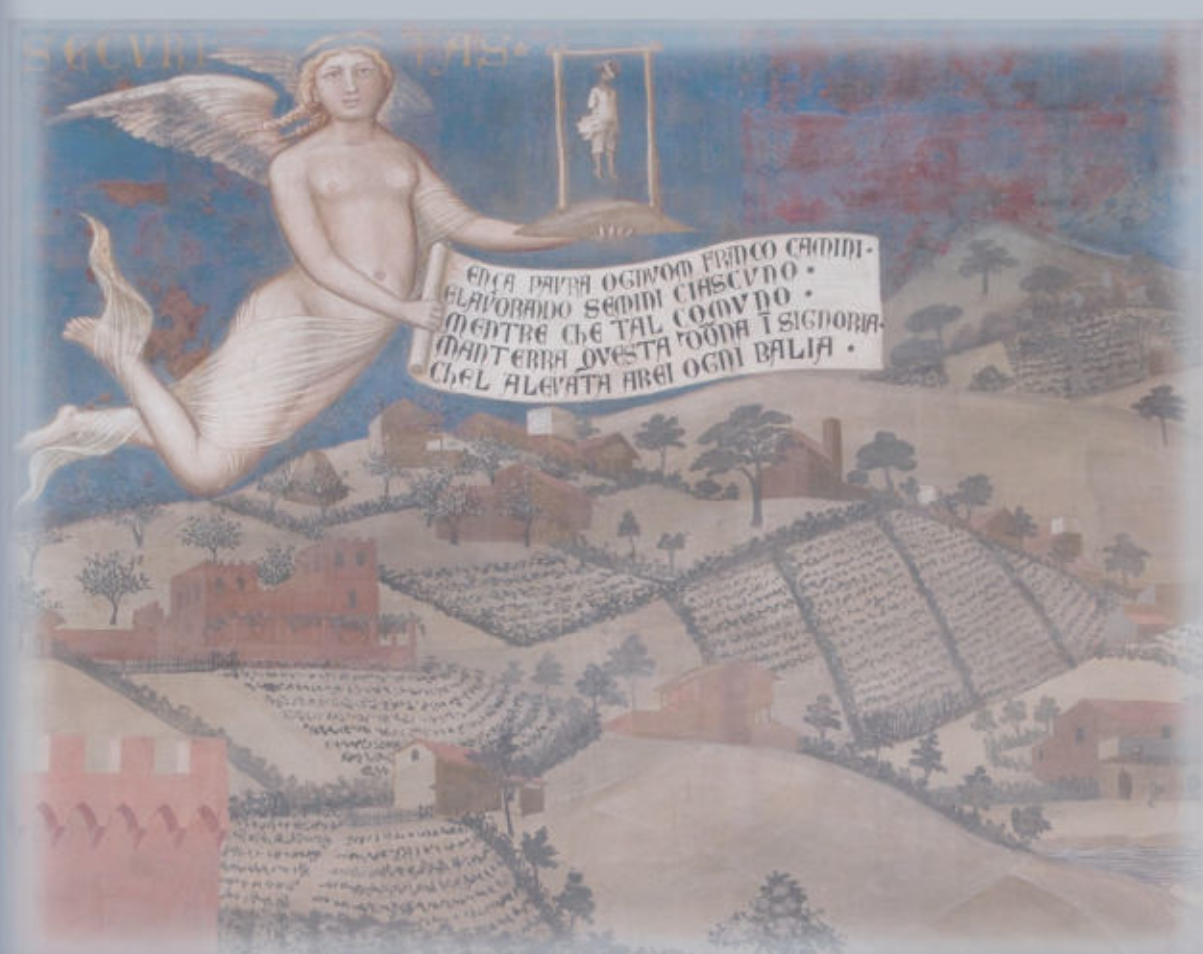 SECVRITAS·
ENÇA PAVRA OGNVOM FRANCO CAMINI·
ELAVORANDO SEMINI CIASCVNO·
MENTRE CHE TAL COMVNO·
MANTERRA QVESTA DŌNA Ī SIGNORIA·
CHEL ALEVATA AREI OGNI BALIA·